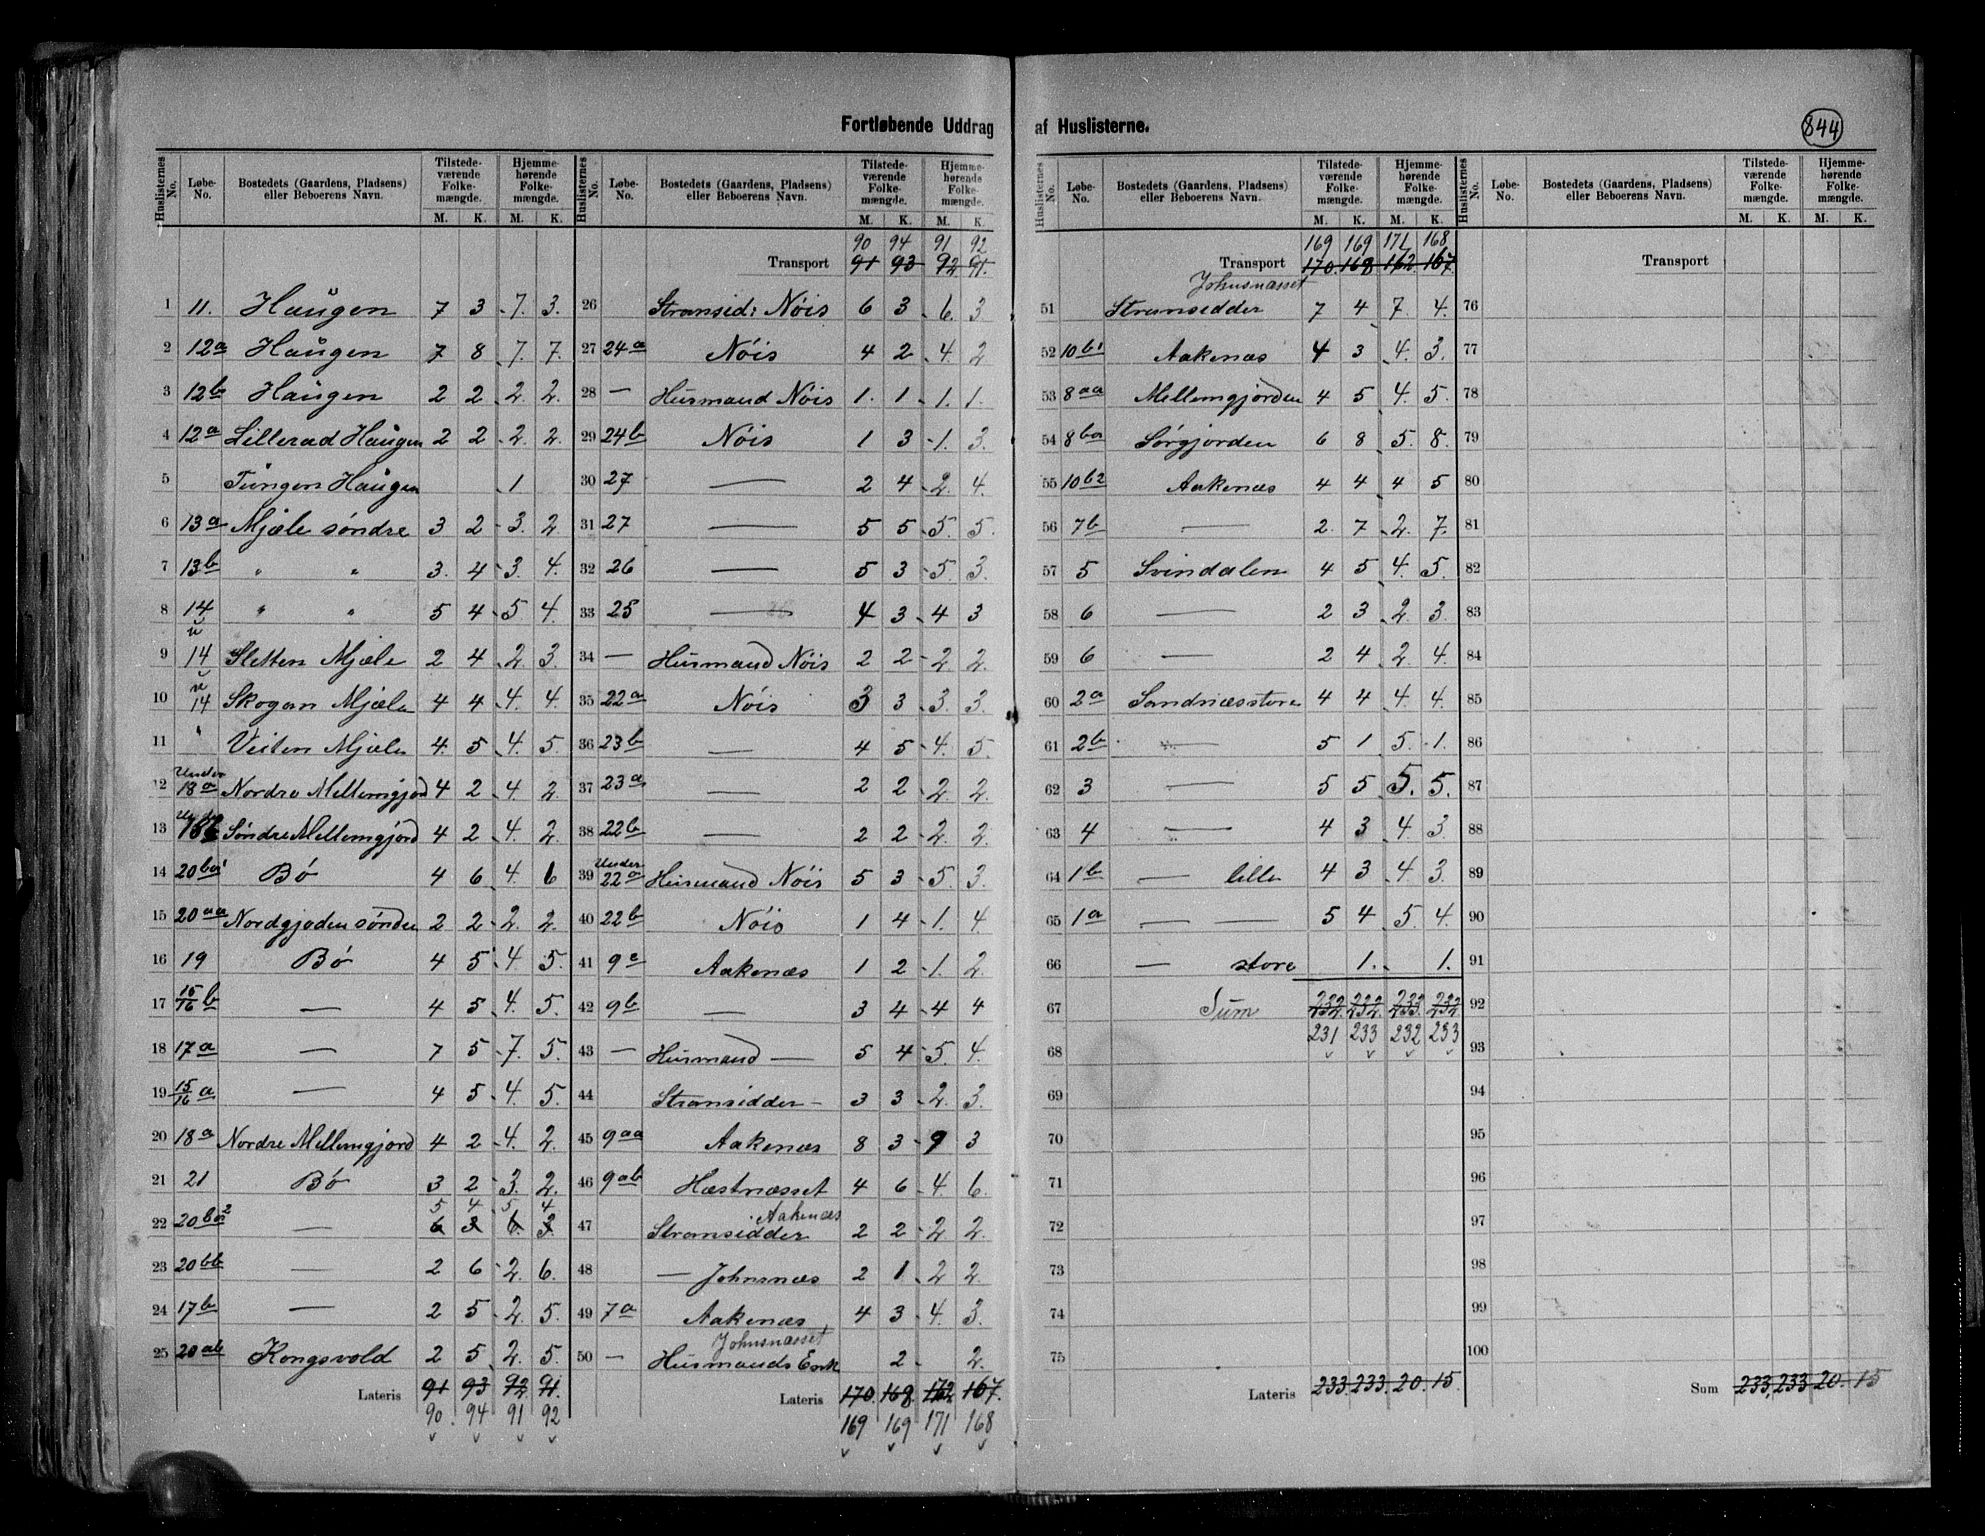 Fortløbende Uddrag af Huslisterne.
844
Huslisternes No. Løbe-No. Bostedets (Gaardens, Pladsens) eller Beboerens Navn. Tilstedeværende Folkemængde. M. K. Hjemmehørende Folkemængde. M. K.
1 11. Haugen 7 3 7. 3.
2 12a Haugen 7 8 7. 7.
3 12b Haugen 2 2 2. 2.
4 12a Lillerad Haugen 2 2 2. 2.
5 Tungen Haugen 1
6 13a Mjæle søndre 3 2 3. 2
7 13b " " 3. 4 3. 4.
8 14 " " 5 4 5 4.
9 u 14 Sletten Mjæle 2 4 2 3.
10 u 14 Skogan Mjæle 4 4 4. 4
11 " Veiten Mjæle 4. 5 4. 5.
12 Under 18a Nordre Mellemgjord 4 2 4. 2.
13 Under 18b Søndre Mellemgjord 4 2 4. 2
14 20ba1 Bø 4 6 4. 6
15 20aa Nordgjoden søndre 2 2 2. 2.
16 19 Bø 4 5 4. 5.
17 15/16 b — 4 5 4. 5.
18 17a — 7 5 7. 5.
19 15/16 a — 4 5 4. 5.
20 18a Nordre Mellemgjord 4 2 4. 2.
21 21 Bø 3 2 3. 2.
5 4 5 4
22 20ba2 — 6 3 6. 3
23 20bb — 2 6 2. 6.
24 17b — 2 5 2. 5.
25 20ab Kongsvold 2 5 2. 5.
Lateris 91 93 92 91.
90. 94 91 92
Huslisternes No. Løbe-No. Bostedets (Gaardens, Pladsens) eller Beboerens Navn. Tilstedeværende Folkemængde. M. K. Hjemmehørende Folkemængde. M. K.
90 94 91 92
Transport 91 93 92 91.
26 Stransid: Nöis 6 3 6. 3
27 24a Nöis 4 2 4. 2
28 — Husmand Nöis 1. 1 1. 1.
29 24b Nöis 1 3 1. 3.
30 27 — 2 4 2. 4.
31 27 — 5 5 5. 5.
32 26 — 5 3 5. 3.
33 25 — 4 3 4 3
34 — Husmand Nöis 2 2 2 2.
35 22a Nöis 3 3 3. 3.
36 23b — 4 5 4. 5
37 23a — 2 2 2. 2.
38 22b — 2 2 2. 2.
39 Under 22a Husmand Nöis 5 3 5. 3.
40 22b Nöis 1 4 1. 4
41 9c Aakenæs 1 2 1. 2.
42 9b — 3 4 4 4
43 — Husmand — 5 4 5 4.
44 Stransidder — 3 3 2. 3.
45 9aa Aakenæs 8 3 9 3
46 9ab Hæstnæsset 4 6 4. 6.
47 Stransidder Aakenæs 2 2 2 2.
48 — Johnsnæs 2 1 2 2.
49 7a Aakenæs 4 3 4. 3.
Johnsnæsset
50 — Husmands Enk 2 2.
Lateris 170. 168. 172 167.
169 169 171 168
Huslisternes No. Løbe-No. Bostedets (Gaardens, Pladsens) eller Beboerens Navn. Tilstedeværende Folkemængde. M. K. Hjemmehørende Folkemængde. M. K.
169 169 171 168
Transport 170. 168 162. 167.
Johnsnæsset
51 Stransidder 7 4 7. 4.
52 10b1 Aakenæs 4 3 4. 3.
53 8aa Mellemgjorden 4 5 4. 5.
54 8ba Sørgjorden 6 8 5 8.
55 10b2 Aakenæs 4 4 4 5
56 7b — 2. 7 2. 7.
57 5 Svindalen 4 5 4. 5.
58 6 — 2 3 2. 3.
59 6 — 2 4 2. 4.
60 2a Sandnæsstore 4 4 4. 4.
61 2b — 5 1 5. 1.
62 3 — 5 5 5. 5.
63 4 — 4 3 4. 3.
64 1b — lille 4 3 4 3.
65 1a — — 5 4 5 4.
66 — store 1. 1.
67 Sum 232. 232. 233. 232.
68 231 233 232 233
69
70
71
72
73
74
75
Lateris 233. 233. 20. 15.
Huslisternes No. Løbe-No. Bostedets (Gaardens, Pladsens) eller Beboerens Navn. Tilstedeværende Folkemængde. M. K. Hjemmehørende Folkemængde. M. K.
Transport
76
77
78
79
80
81
82
83
84
85
86
87
88
89
90
91
92
93
94
95
96
97
98
99
100
Sum 233. 233 20. 15